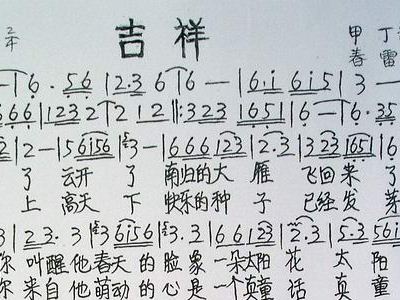 2/4 吉祥 甲丁
春雷
— | 6. 56 | 12.3 6 | 6 — | 6.i 6i5 | 3 —
666 | 1232 | 2 12 | 323 1651 | 6 — | 6. 35
2 | 2 — | 56156 | 3 — | 666123 | 2.3 | 323165 | 6
了 云开 了 南归的大 雁 飞回来 了
上 高天 下 快乐的种 子 已经发 芽
3 | 23. 3 | 36156 | 3. 3 | 666123 | 2. 3 | 3231651
你 叫醒他春天 的 脸 象 一朵太阳 花 太 阳
你 来自他萌动 的 心 是 一个真童 话 真 童